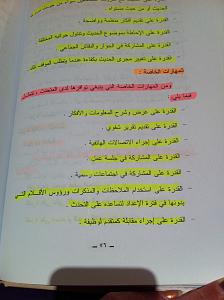 الحديث أو من حيث مستواه.
- القدرة على تقديم أفكار منظمة وواضحة.
- القدرة على الإحاطة بموضوع الحديث وتناول جوانبه المختلفة
- القدرة على المشاركة في الحوار والنقاش الجماعي
- القدرة على تغيير مجرى الحديث بكفاءة عندما يتطلب الموقف ذلك
المهارات الخاصة :
ومن المهارات الخاصة التي ينبغي توافرها لدى المتحدث
فيما يلي :
- القدرة على عرض وشرح المعلومات والأفكار.
- القدرة على تقديم تقرير شفوي
- القدرة على إجراء الاتصالات الهاتفية.
- القدرة على المشاركة في جلسة عمل
- القدرة على المشاركة في اجتماعات رسمية.
- القدرة على استخدام الملاحظات والمذكرات ورؤوس الأقلام التي
يدونها في فترة الإعداد لتساعده على التحدث.
- القدرة على إجراء مقابلة كمتقدم لوظيفة.